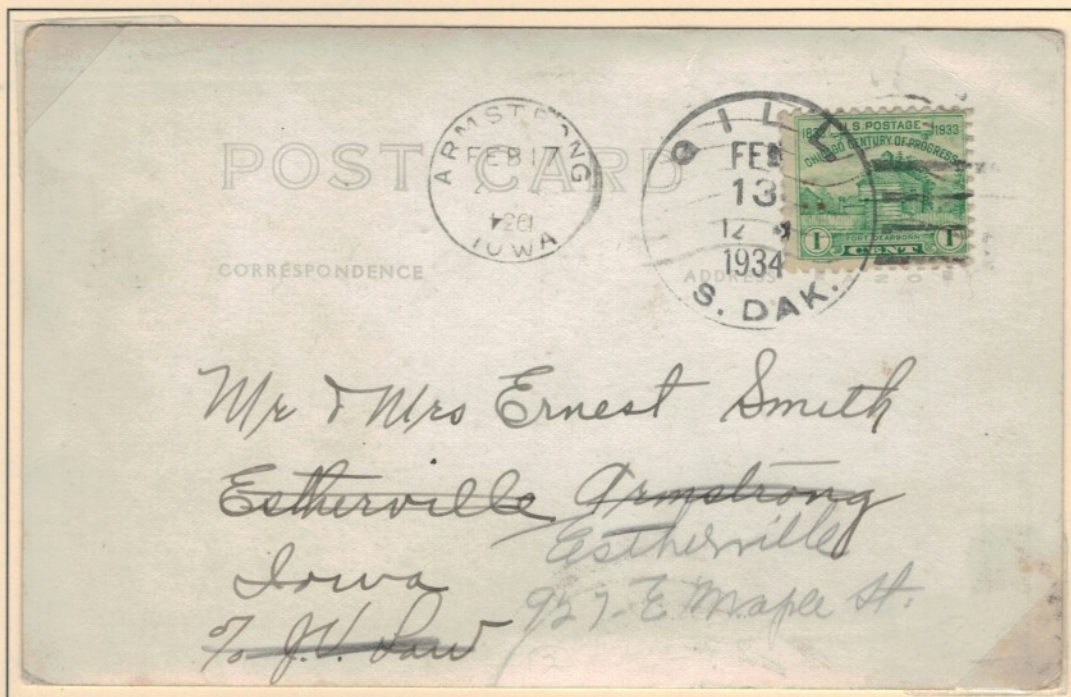 ARMSTRONG
FEB 17
1934
IOWA
FEB
13
12
1934
S. DAK.
1833 U.S. POSTAGE 1933
CHICAGO CENTURY OF PROGRESS
FORT DEARBORN
1 CENT 1
POST CARD
CORRESPONDENCE
ADDRESS
Mr & Mrs Ernest Smith
Estherville Armstrong
Estherville
Iowa
927 E. Maple St.
℅ J.V. Law